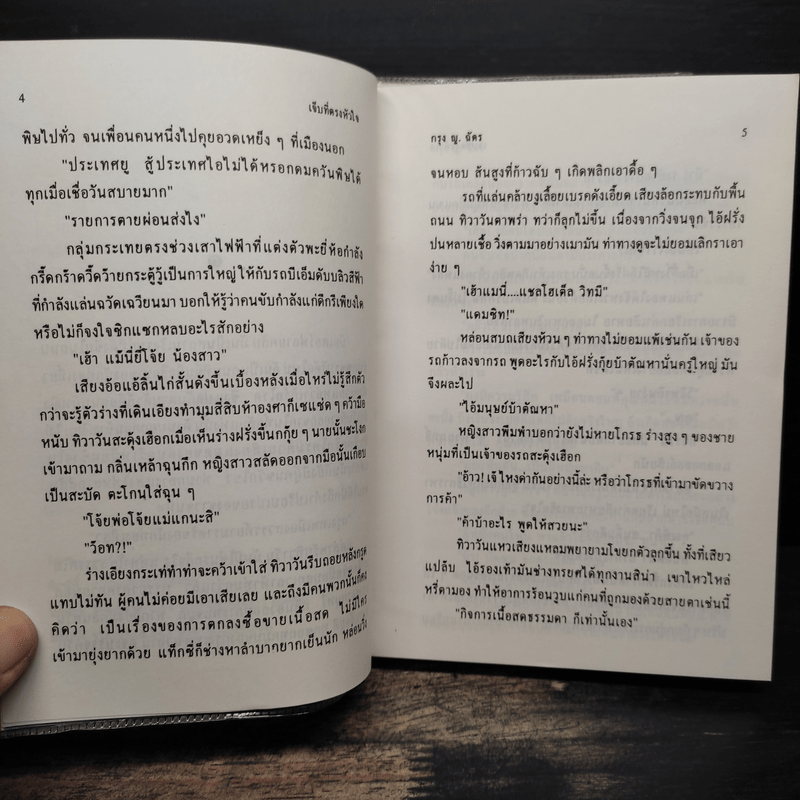 4
เจ็บที่ตรงหัวใจ
พิษไปทั่ว จนเพื่อนคนหนึ่งไปคุยอวดเหยีง ๆ ที่เมืองนอก
"ประเทศยู สู้ประเทศไอไม่ได้หรอกดมควันพิษได้
ทุกเมื่อเชื่อวันสบายมาก"
"รายการตายผ่อนส่งไง"
กลุ่มกระเทยตรงช่วงเสาไฟฟ้าที่แต่งตัวพะยี่ห้อกำลัง
กรี๊ดกร๊าดวี้ดว้ายกระตู้วู้เป็นการใหญ่ ให้กับรถบีเอ็มดับบลิวสีฟ้า
ที่กำลังแล่นฉวัดเฉวียนมา บอกให้รู้ว่าคนขับกำลังแก่ดีกรีเพียงใด
หรือไม่ก็จงใจซิกแซกหลบอะไรสักอย่าง
"เฮ้า แม้นี่ยี่โจ๊ย น้องสาว"
เสียงอ้อแอ้ลิ้นไก่สั้นดังขึ้นเบื้องหลังเมื่อไหร่ไม่รู้สึกตัว
กว่าจะรู้ตัวร่างที่เดินเอียงทำมุมสี่สิบห้าองศาก็เซแซ่ด ๆ คว้ามือ
หนับ ทิวาวันสะดุ้งเฮือกเมื่อเห็นร่างฝรั่งขึ้นกกุ๊ย ๆ นายนั้นชะโงก
เข้ามาถาม กลิ่นเหล้าฉุนกึก หญิงสาวสลัดออกจากมือนั้นเกือบ
เป็นสะบัด ตะโกนใส่ฉุน ๆ
"โจ๊ยพ่อโจ๊ยแม่แกนะสิ"
"ว๊อท?!"
ร่างเอียงกระเท่ทำท่าจะคว้าเข้าใส่ ทิวาวันรีบถอยหลังกรูด
แทบไม่ทัน ผู้คนไม่ค่อยมีเอาเสียเลย และถึงมีคนพวกนั้นก็คง
คิดว่า เป็นเรื่องของการตกลงซื้อขายเนื้อสด ไม่มีใคร
เข้ามายุ่งยากด้วย แท็กซี่ก็ช่างหาลำบากยากเย็นนัก หล่อนวิ่ง
กรุง ญ. ฉัตร
5
จนหอบ ส้นสูงที่ก้าวฉับ ๆ เกิดพลิกเอาดื้อ ๆ
รถที่แล่นคล้ายงูเลื้อยเบรคดังเอี๊ยด เสียงล้อกระทบกับพื้น
ถนน ทิวาวันตาพร่า ทว่าก็ลุกไม่ขึ้น เนื่องจากวิ่งจนจุก ไอ้ฝรั่ง
ปนหลายเชื้อ วิ่งตามมาอย่างเมามัน ท่าทางดูจะไม่ยอมเลิกราเอา
ง่าย ๆ
"เฮ้าแมนี่....แชลโฮเต็ล วิทมี"
"แดมซิท!"
หล่อนสบถเสียงห้วน ๆ ท่าทางไม่ยอมแพ้เช่นกัน เจ้าของ
รถก้าวลงจากรถ พูดอะไรกับไอ้ฝรั่งกุ๊ยบ้าตัณหานั่นครู่ใหญ่ มัน
จึงผละไป
"ไอ้มนุษย์บ้าตัณหา"
หญิงสาวพึมพำบอกว่ายังไม่หายโกรธ ร่างสูง ๆ ของชาย
หนุ่มที่เป็นเจ้าของรถสะดุ้งเฮือก
"อ้าว! เจ๊ ไหงด่ากันอย่างนี้ล่ะ หรือว่าโกรธที่เข้ามาขัดขวาง
การค้า"
"ค้าบ้าอะไร พูดให้สวยนะ"
ทิวาวันแหวเสียงแหลมพยายามโขยกตัวลุกขึ้น ทั้งที่เสียว
แปล๊บ ไอ้รองเท้ามันช่างทรยศได้ทุกงานสิน่า เขาไหวไหล่
หรี่ตามอง ทำให้อาการร้อนวูบแก่คนที่ถูกมองด้วยสายตาเช่นนี้
"กิจการเนื้อสดธรรมดา ก็เท่านั้นเอง"